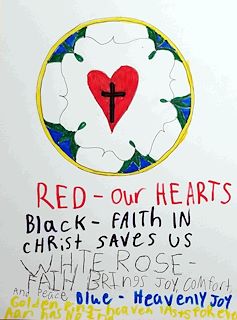 RED - our HEARTS
Black - FAITH IN
CHRIST SAVES US
WHITE ROSE -
FAITH BRINGS JOY, COMFORT
AND Peace
Blue - HeavenLy JOY
Golden ring - heaven lasts forever
has no end